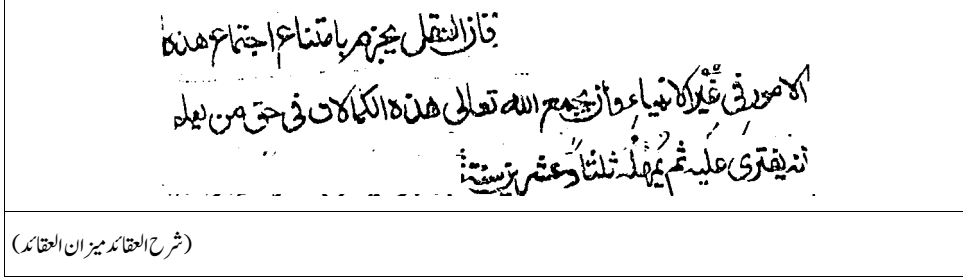 فان النقل يجزم بامتناع اجتماع هذه
الامور في غير الانبياء وأن يجمع الله تعالى هذه الكمالات في حق من يعلم
انه يفترى عليه ثم يمهله ثلثاً وعشرين سنة
(شرح العقائد میزان العقائد)